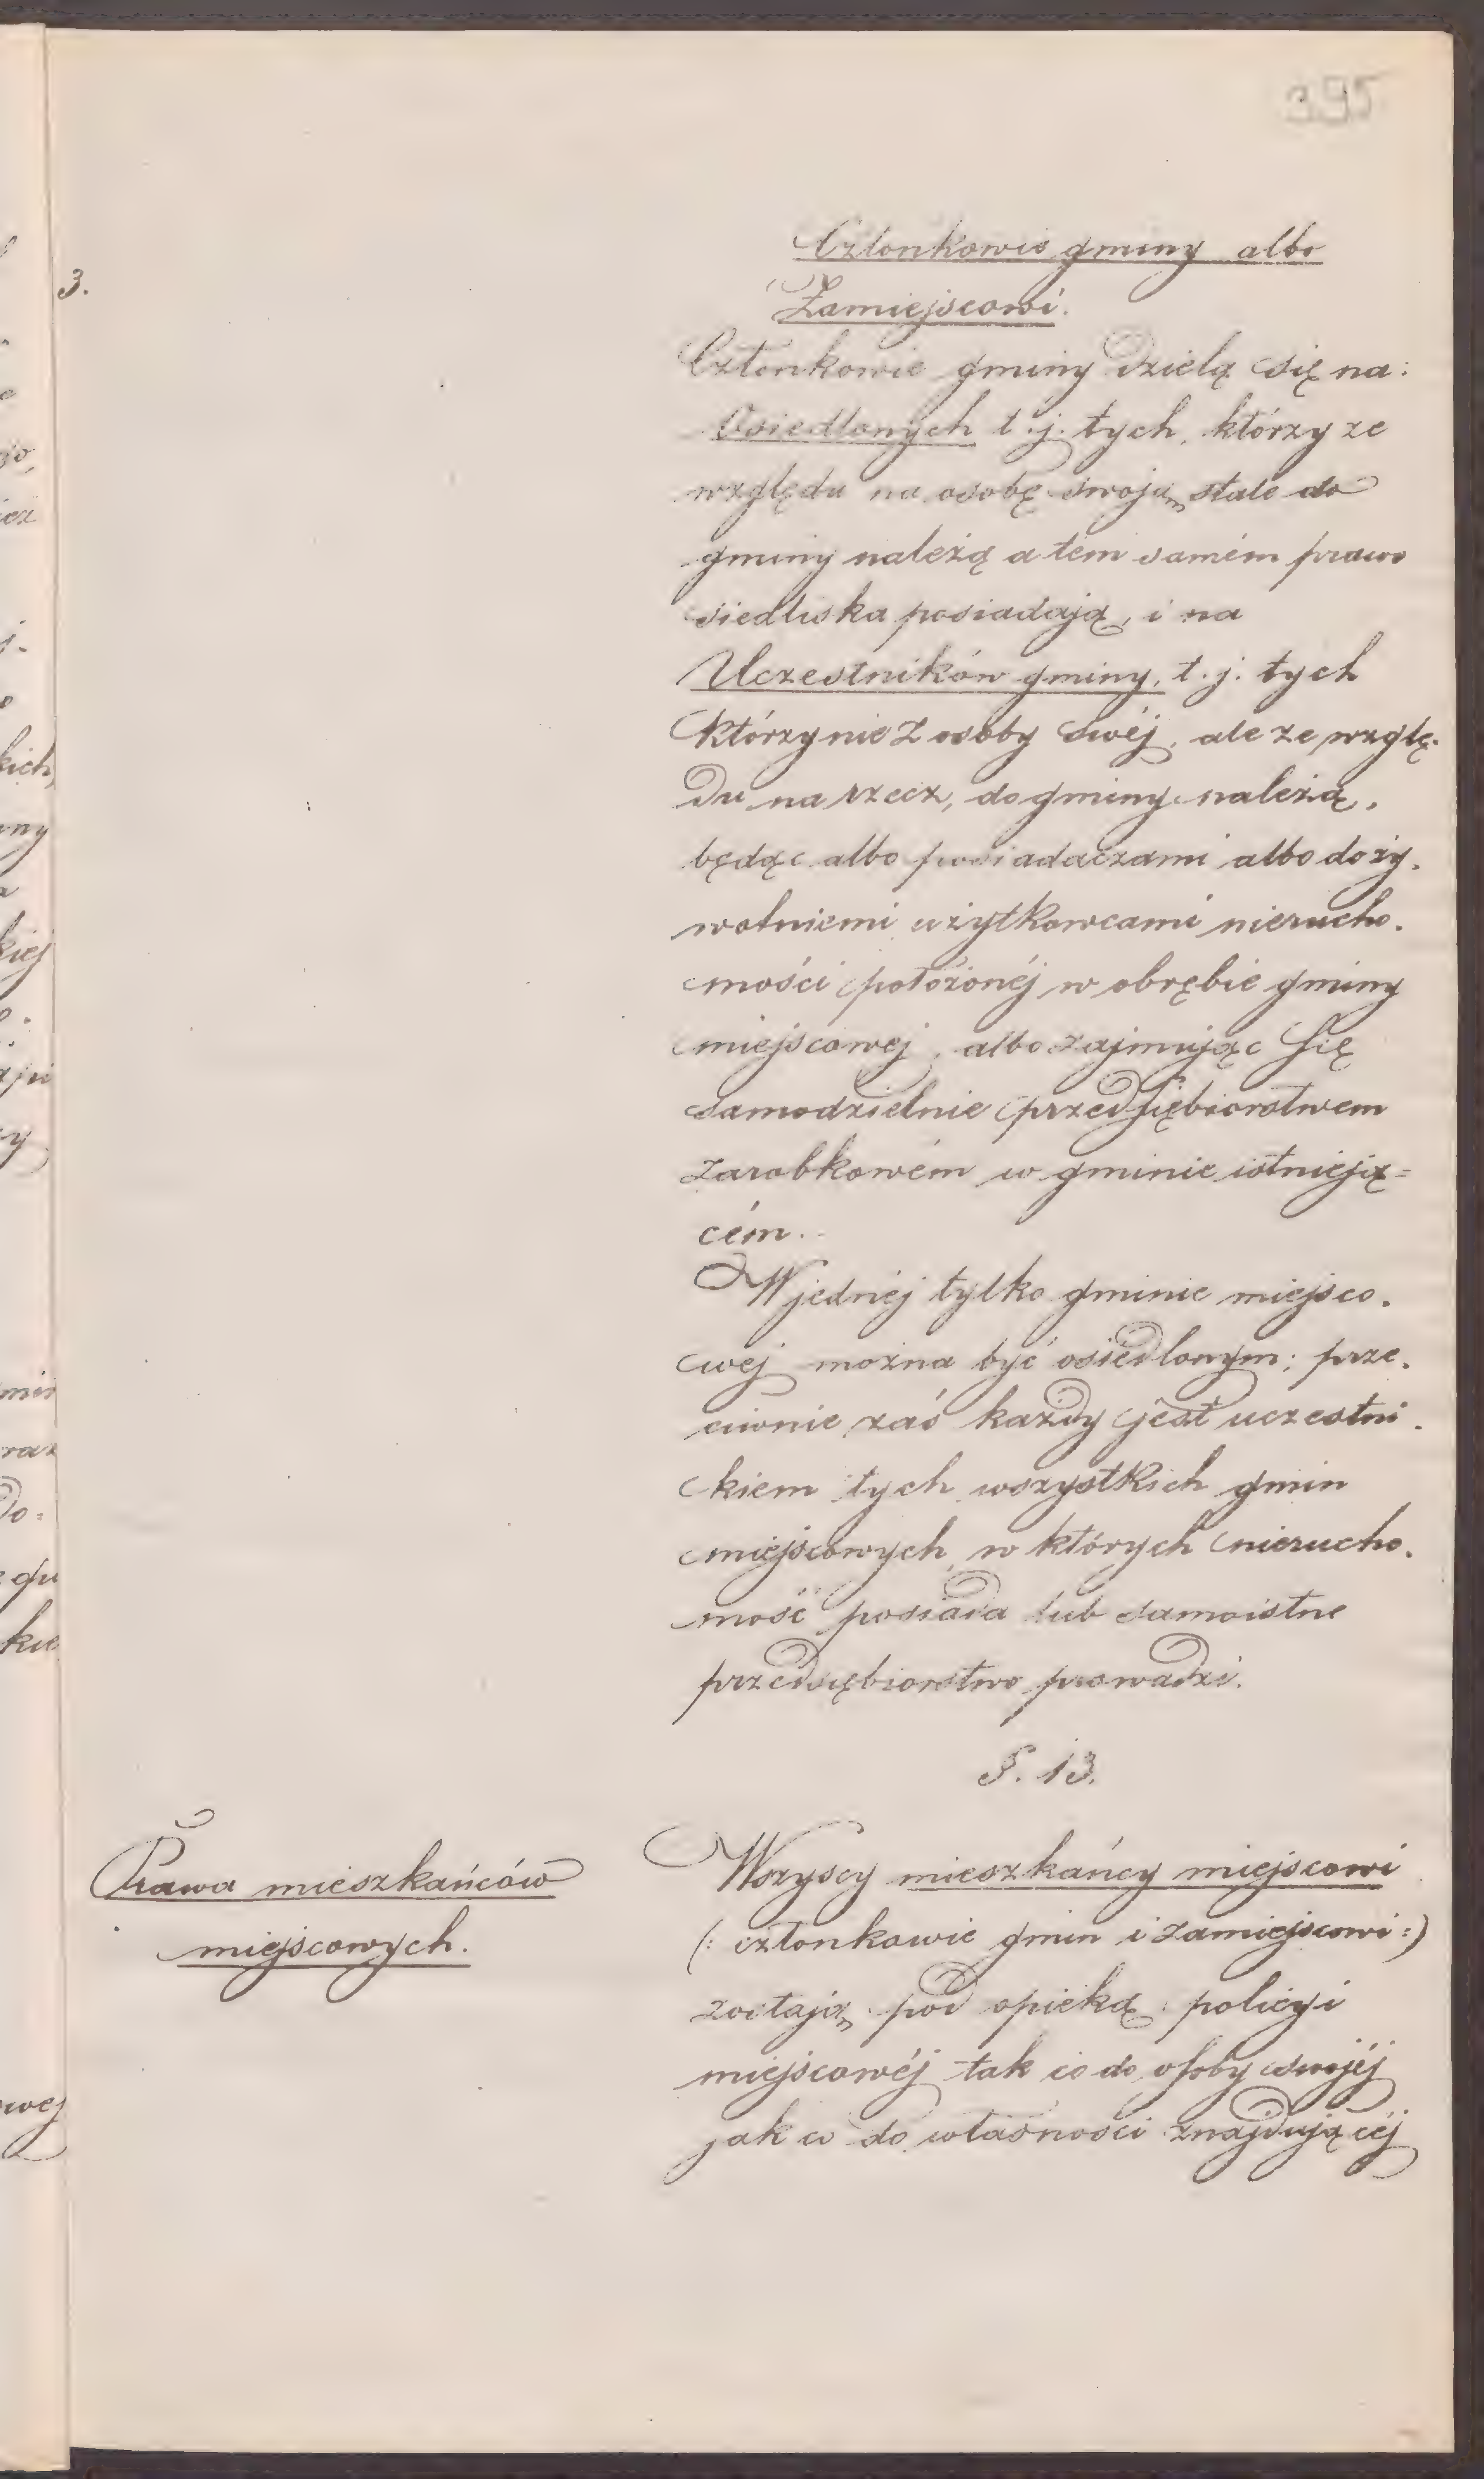 395
3.
Członkowie gminy albo
Zamiejscowi.
Członkowie gminy dzielą się na:
Osiedlonych t. j. tych, którzy ze
względu na osobę swoją stale do
gminy należą a tém samém prawo
siedliska posiadają, i na
Uczestników gminy, t. j. tych
którzy nie z osoby swéj, ale ze wzglę-
du na rzecz, do gminy należą,
będąc albo posiadaczami albo doży-
wotniemi użytkowcami nierucho-
mości położonéj w obrębie gminy
miejscowej, albo zajmując się
samodzielnie przedsiębiorstwem
zarobkowém w gminie istnieją=
cém.
W jednéj tylko gminie miejsco-
wej można być osiedlonym; prze-
ciwnie zaś każdy jest uczestni-
kiem tych wszystkich gmin
miejscowych, w których nierucho-
mość posiada lub samoistne
przedsiębiorstwo prowadzi.
§. 13.
Prawa mieszkańców
miejscowych.
Wszyscy mieszkańcy miejscowi
(: członkowie gmin i zamiejscowi :)
zostają pod opieką policyi
miejscowéj tak co do osoby swojéj
jak co do własności znajdującéj